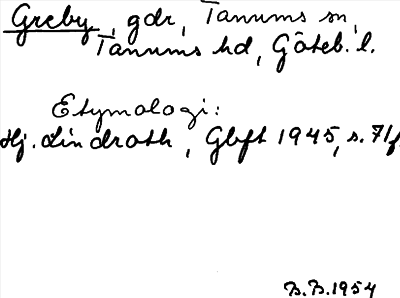 Greby, gdr, Tanums sn,
Tanums hd, Göteb. l.
Etymologi:
Hj. Lindroth, Gbft 1945, s. 71f.
B.B. 1954